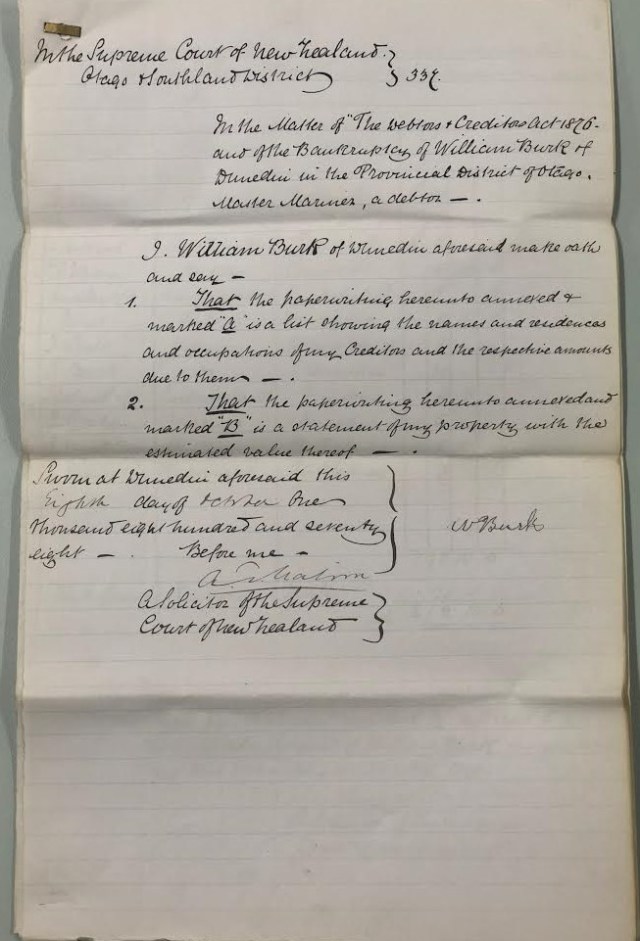 In the Supreme Court of New Zealand
Otago & Southland District } 337.
In the Matter of "The Debtors & Creditors Act 1876.
and of the Bankruptcy of William Burk of
Dunedin in the Provincial District of Otago.
Master Mariner, a debtor — .
I. William Burk of Dunedin aforesaid make oath
and say —
1. That the paperwriting hereunto annexed &
marked "A" is a list showing the names and residences
and occupations of my Creditors and the respective amounts
due to them — .
2. That the paperwriting hereunto annexed and
marked "B" is a statement of my property with the
estimated value thereof — .
Sworn at Dunedin aforesaid this
Eighth day of October One
thousand eight hundred and seventy
eight — . Before me —
W Burk
A.
A Solicitor of the Supreme
Court of New Zealand